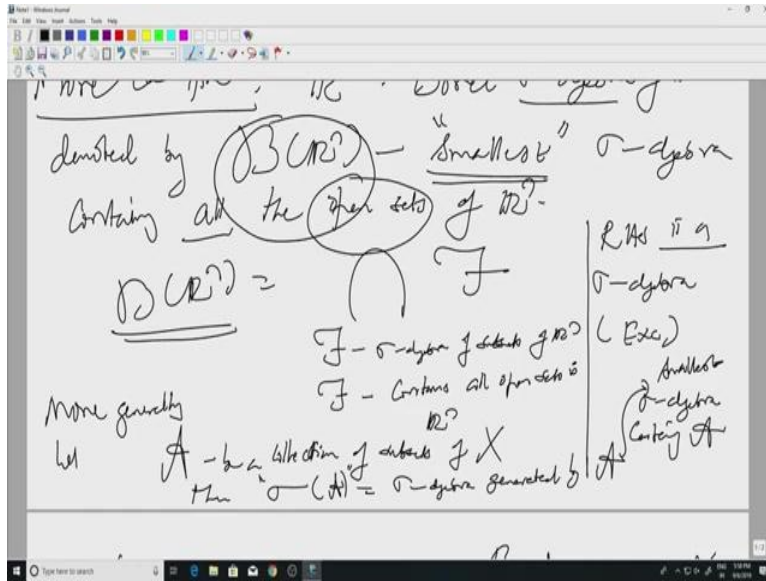 Note1 - Windows Journal
File Edit View Insert Actions Tools Help
denoted by B(ℝⁿ) - "Smallest" σ-algebra
Containing all the open sets of ℝⁿ.
B(ℝⁿ) = ∩ F
F - σ-algebra of subsets of ℝⁿ
F - Contains all open sets in ℝⁿ
RHS is a
σ-algebra
(Exc.)
More generally
let A - be a collection of subsets of X
then "σ(A)" = σ-algebra generated by A
Smallest
σ-algebra
Containing A
Type here to search